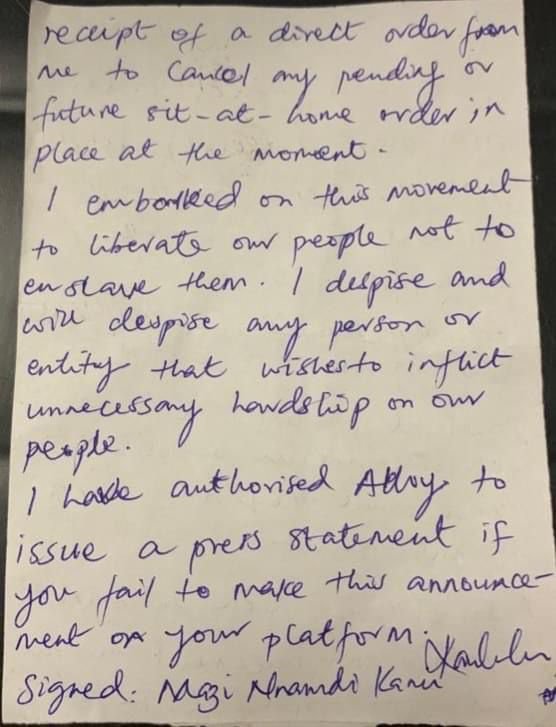 receipt of a direct order from
me to cancel any pending or
future sit-at-home order in
place at the moment.
I embarked on this movement
to liberate our people not to
enslave them. I despise and
will despise any person or
entity that wishes to inflict
unnecessary hardship on our
people.
I have authorised Alloy to
issue a press statement if
you fail to make this announce-
ment on your platform.
Signed: Mazi Nnamdi Kanu